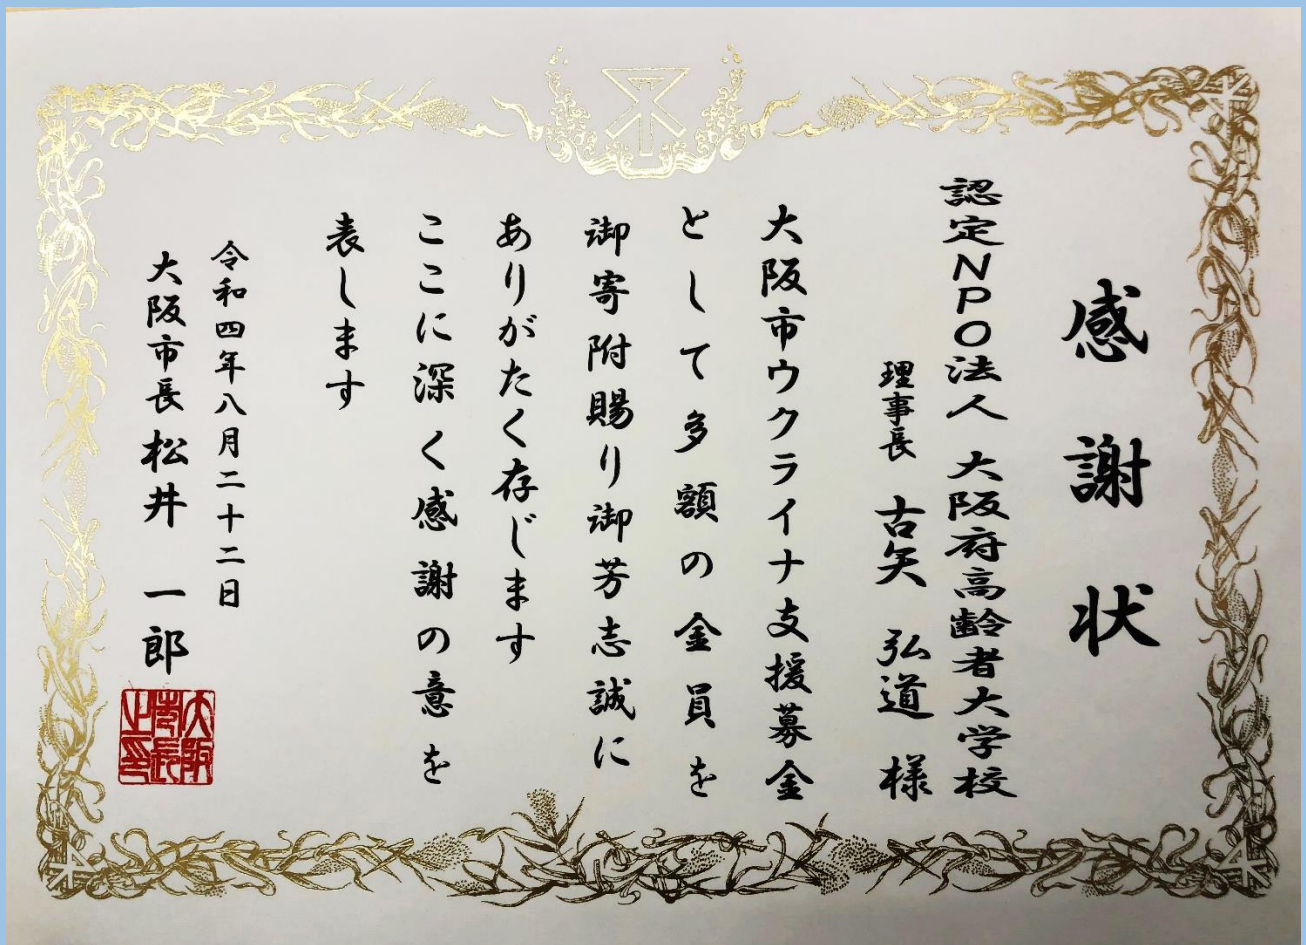 感謝状
認定NPO法人 大阪府高齢者大学校
理事長 古矢 弘道 様
大阪市ウクライナ支援募金
として多額の金員を
御寄附賜り御芳志誠に
ありがたく存じます
ここに深く感謝の意を
表します
令和四年八月二十二日
大阪市長 松井 一郎
大阪
市長
之印